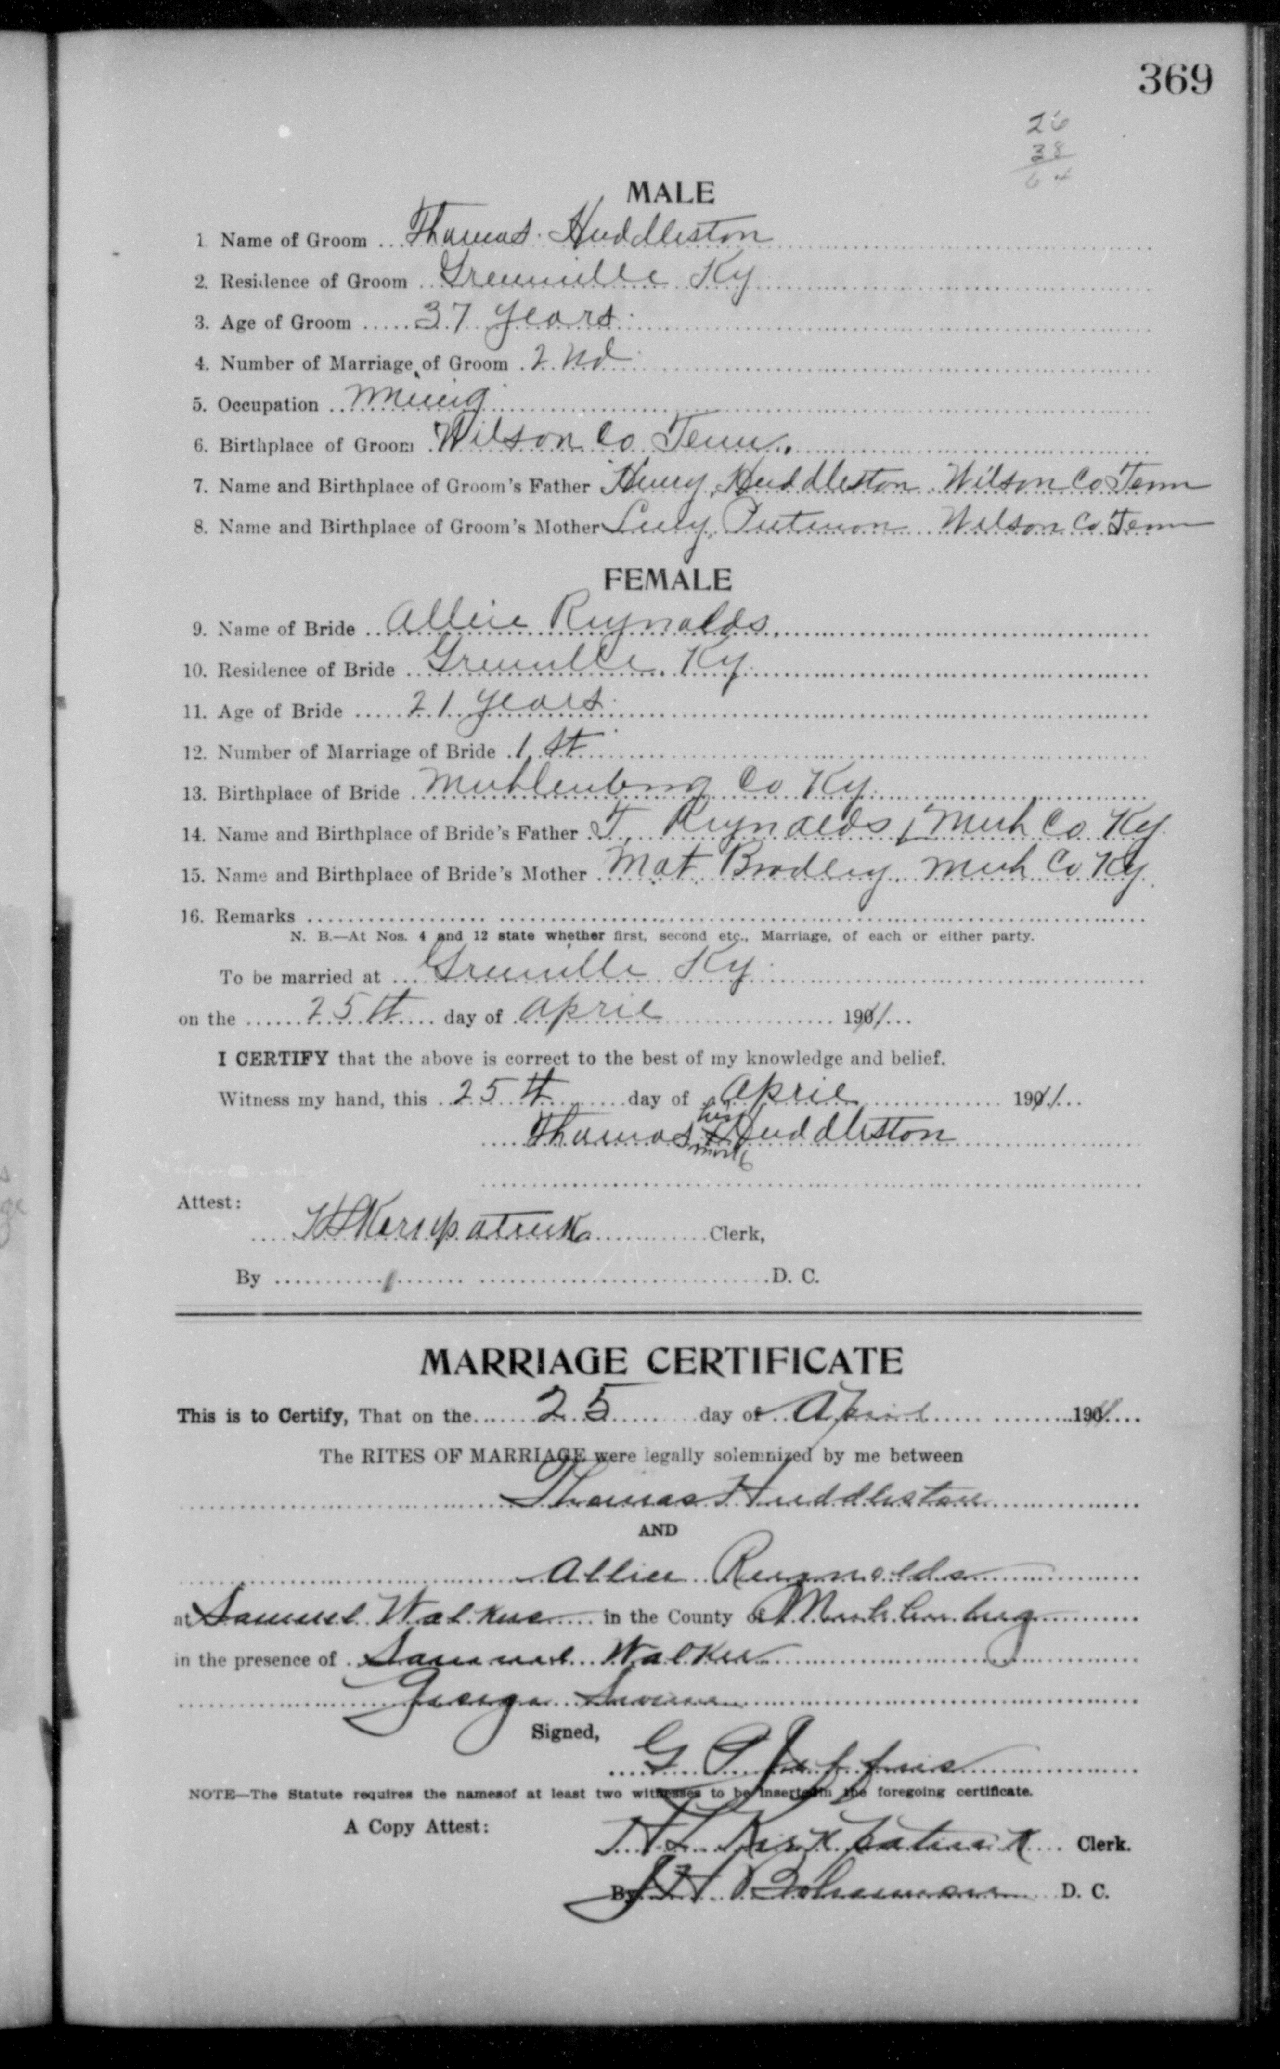 369
26
38
64
MALE
1 Name of Groom Thomas Huddleston
2. Residence of Groom Greenville Ky
3. Age of Groom 37 years
4. Number of Marriage of Groom 2nd
5. Occupation Mining
6. Birthplace of Groom Wilson Co Tenn.
7. Name and Birthplace of Groom's Father Henry Huddleston Wilson Co Tenn
8. Name and Birthplace of Groom's Mother Lucy Putmon Wilson Co Tenn
FEMALE
9. Name of Bride Allie Reynolds
10. Residence of Bride Greenville Ky
11. Age of Bride 21 years
12. Number of Marriage of Bride 1st
13. Birthplace of Bride Muhlenberg Co Ky
14. Name and Birthplace of Bride's Father T. Reynolds, Muh Co Ky
15. Name and Birthplace of Bride's Mother Mat Bradley Muh Co Ky
16. Remarks
N. B.—At Nos. 4 and 12 state whether first, second etc., Marriage, of each or either party.
To be married at Greenville Ky
on the 25th day of April 1911
I CERTIFY that the above is correct to the best of my knowledge and belief.
Witness my hand, this 25th day of April 1911
his
Thomas X Huddleston
mark
Attest:
Kirkpatrick Clerk,
By D. C.
MARRIAGE CERTIFICATE
This is to Certify, That on the 25 day of April 1911
The RITES OF MARRIAGE were legally solemnized by me between
Thomas Huddleston
AND
Allie Reynolds
at Samuel Walkers in the County of Muhlenberg
in the presence of Samuel Walker
George
Signed,
G P
NOTE—The Statute requires the namesof at least two witnesses to be inserted in the foregoing certificate.
A Copy Attest:
Kirkpatrick Clerk.
By D. C.